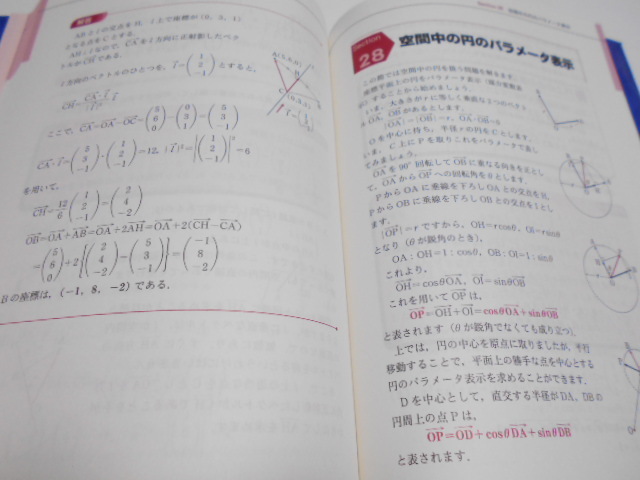 解答
ABとlの交点をH, l上で座標が(0, 3, 1)
となる点をCとする.
AH⊥lなので, CAをl方向に正射影したベク
トルがCHである.
l方向のベクトルのひとつを, l=(1 2 -1)とすると,
CH=CA・l/|l|² l
ここで, CA=OA-OC=(5 6 0)-(0 3 1)=(5 3 -1)
CA・l=(5 3 -1)・(1 2 -1)=12, |l|²=|(1 2 -1)|²=6
を用いて,
CH=12/6(1 2 -1)=(2 4 -2)
OB=OA+AB=OA+2AH=OA+2(CH-CA)
=(5 6 0)+2{(2 4 -2)-(5 3 -1)}=(-1 8 -2)
Bの座標は, (-1, 8, -2)である.
A(5, 6, 0)
H
C
(0, 3, 1)
B
Section
28
空間中の円のパラメータ表示
この節では空間中の円を扱う問題を解きます.
座標平面上の円をパラメータ表示
することから始めましょう.
いま, 大きさがrに等しく垂直な2つのベクト
ルOA, OBがあるとします.
|OA|=|OB|=r, OA・OB=0
Oを中心に持ち, 半径rの円をCとします.
いま, C上にPを取りこれをパラメータで表し
てみましょう.
OAを90°回転してOBに重なる向きを正とし
て, OAからOPへの回転角をθとします.
PからOAに垂線を下ろしOAとの交点をH,
PからOBに垂線を下ろしOBとの交点をIとし
ます.
|OP|=rですから, OH=rcosθ, OI=rsinθ
となり(θが鋭角のとき),
OA:OH=1:cosθ, OB:OI=1:sinθ
これより,
OH=cosθOA, OI=sinθOB
これを用いてOPは,
OP=OH+OI=cosθOA+sinθOB
と表されます(θが鋭角でなくても成り立つ).
上では, 円の中心を原点に取りましたが, 平行
移動することで, 平面上の勝手な点を中心とする
円のパラメータ表示を求めることができます.
Dを中心として, 直交する半径がDA, DBの
円周上の点Pは,
OP=OD+cosθDA+sinθDB
と表されます.